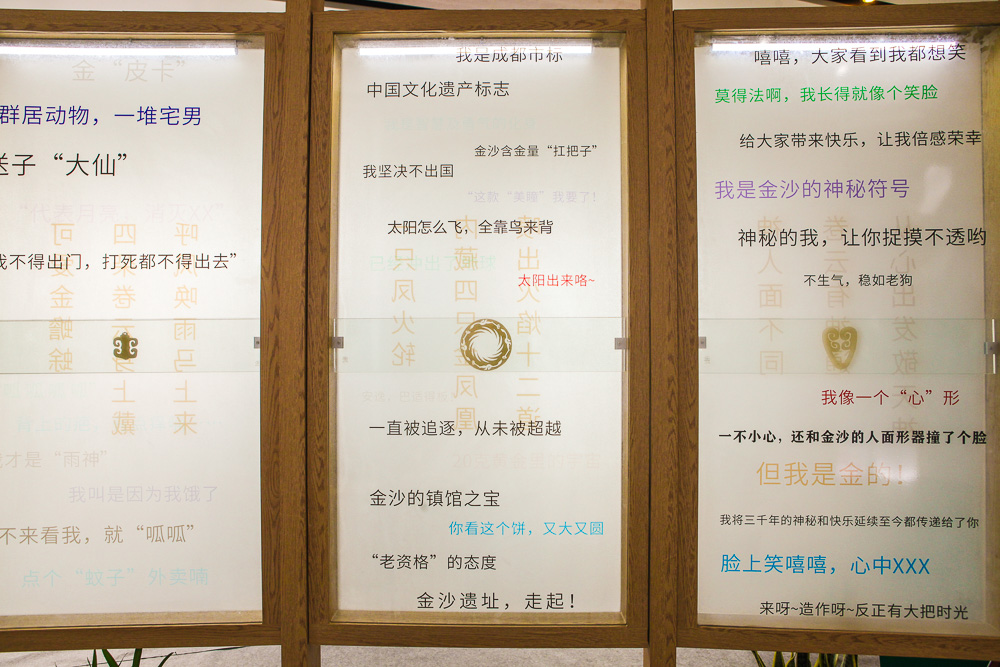 金“皮卡”
群居动物，一堆宅男
送子“大仙”
我不得出门，打死都不得出去”
呼风唤雨马上来
四朵卷云身上戴
可爱金蟾蜍
我才是“雨神”
我叫是因为我饿了
不来看我，就“呱呱”
点个“蚊子”外卖喃
我是成都市标
中国文化遗产标志
金沙含金量“扛把子”
我坚决不出国
“这款“美瞳”我要了！
太阳怎么飞，全靠鸟来背
太阳出来咯~
喷出火焰十二道
内藏四只金凤凰
只凤火轮
一直被追逐，从未被超越
金沙的镇馆之宝
你看这个饼，又大又圆
“老资格”的态度
金沙遗址，走起！
嘻嘻，大家看到我都想笑
莫得法啊，我长得就像个笑脸
给大家带来快乐，让我倍感荣幸
我是金沙的神秘符号
神秘的我，让你捉摸不透哟
不生气，稳如老狗
从心出发敬天神
神人面不同
我像一个“心”形
一不小心，还和金沙的人面形器撞了个脸
但我是金的！
我将三千年的神秘和快乐延续至今都传递给了你
脸上笑嘻嘻，心中XXX
来呀~造作呀~反正有大把时光